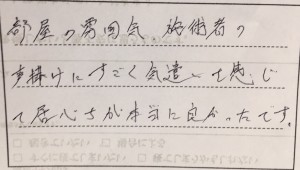 部屋の雰囲気 施術者の
声掛けにすごく気遣いを感じ
て居心ちが本当に良かったです。